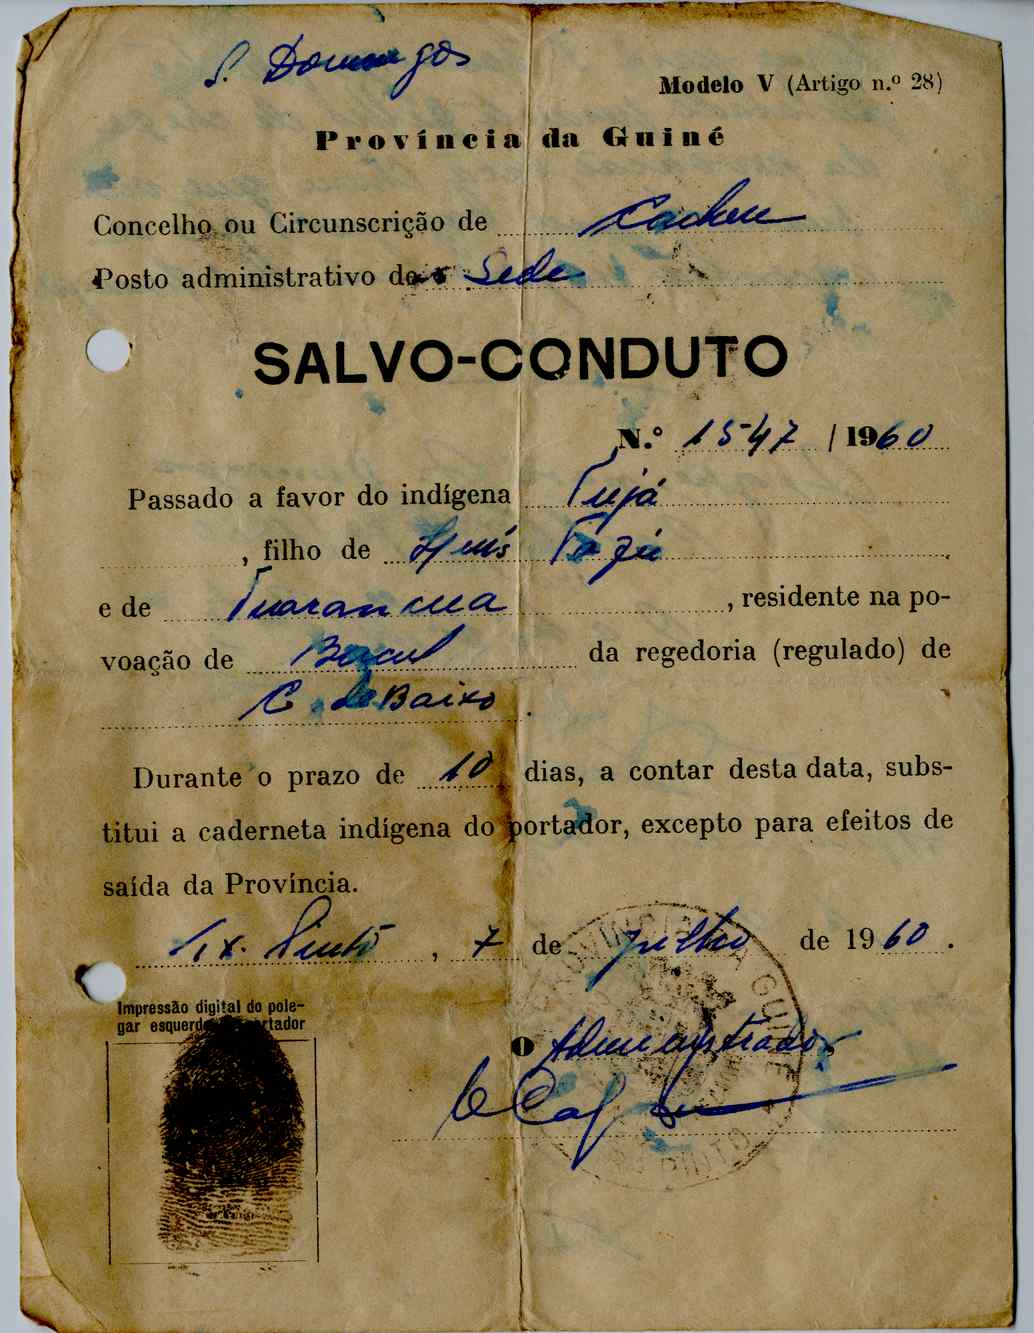 S. Domingos
Modelo V (Artigo n.º 28)
Província da Guiné
Concelho ou Circunscrição de Cacheu
Posto administrativo de Sede
SALVO-CONDUTO
N.º 1547 / 1960
Passado a favor do indígena Tujá
, filho de
e de Tuarancua , residente na po-
voação de Bacul da regedoria (regulado) de
C. de Baixo .
Durante o prazo de 10 dias, a contar desta data, subs-
titui a caderneta indígena do portador, excepto para efeitos de
saída da Província.
Tx. Pinto , 7 de Julho de 1960 .
PROVINCIA DA GUINÉ
PINTO
Impressão digital do pole-
gar esquerdo portador
O Administrador